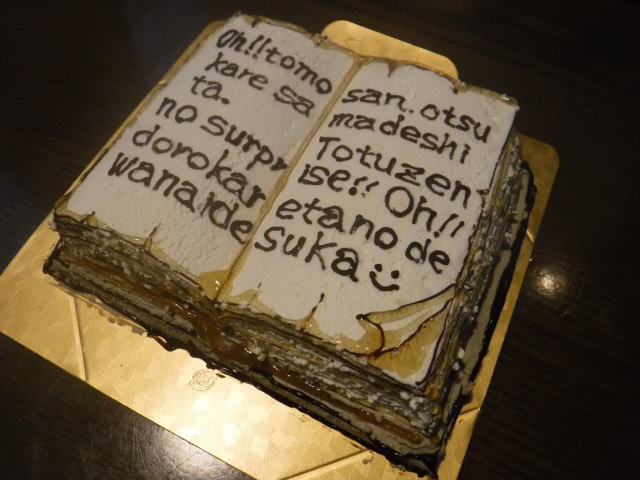 Oh!!tomo san.otsu
kare sa madeshi
ta. Totuzen
no surprise!! Oh!!
dorokar etano de
wanaide suka